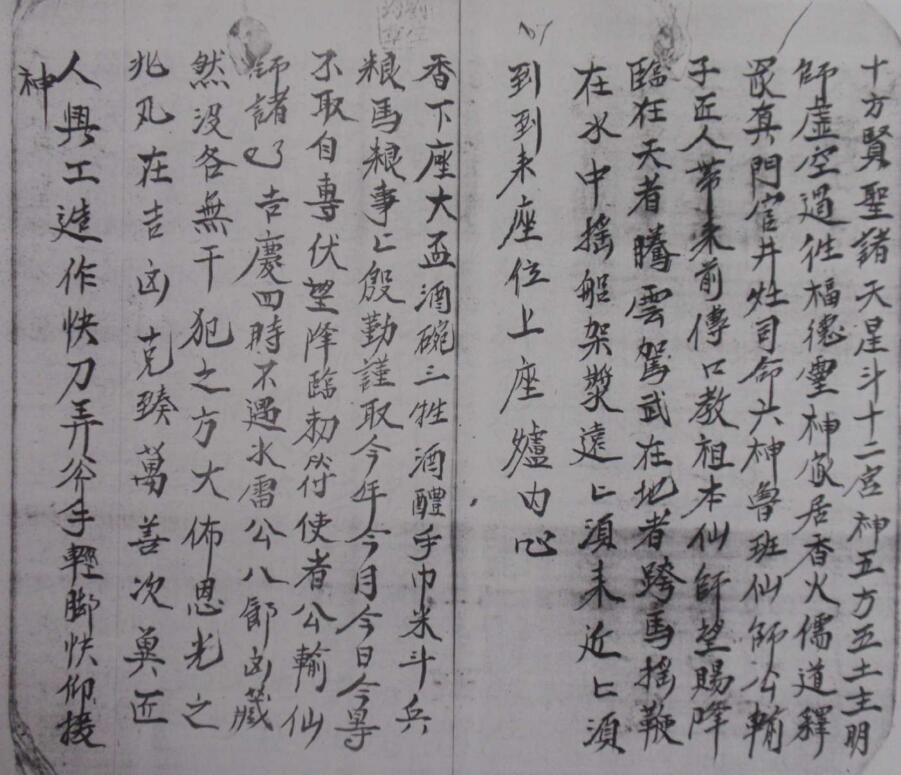 十方賢聖諸天星斗十二宮神五方五土主明
師虛空過往福德靈神家居香火儒道釋
罠真門官井灶司命六神魯班仙師公輸
子匠人帶來前傳口教祖本仙師望賜降
臨在天者騰雲駕武在地者跨馬搖鞭
在水中搖船架槳遠〻須来近〻須
到到来座位上座爐内
香下座大盃酒碗三牲酒醴手巾米斗兵
粮馬粮事〻殷勤謹取今年今月今日今
不取自專伏望降臨勅符使者公輸仙
師諸 吉慶四時不遇水雷公八節凶藏
然没各無干犯之方大佈恩光之
兆凡在吉凶克臻萬善次奠匠
人興工造作快刀弄斧手輕脚快仰接
神